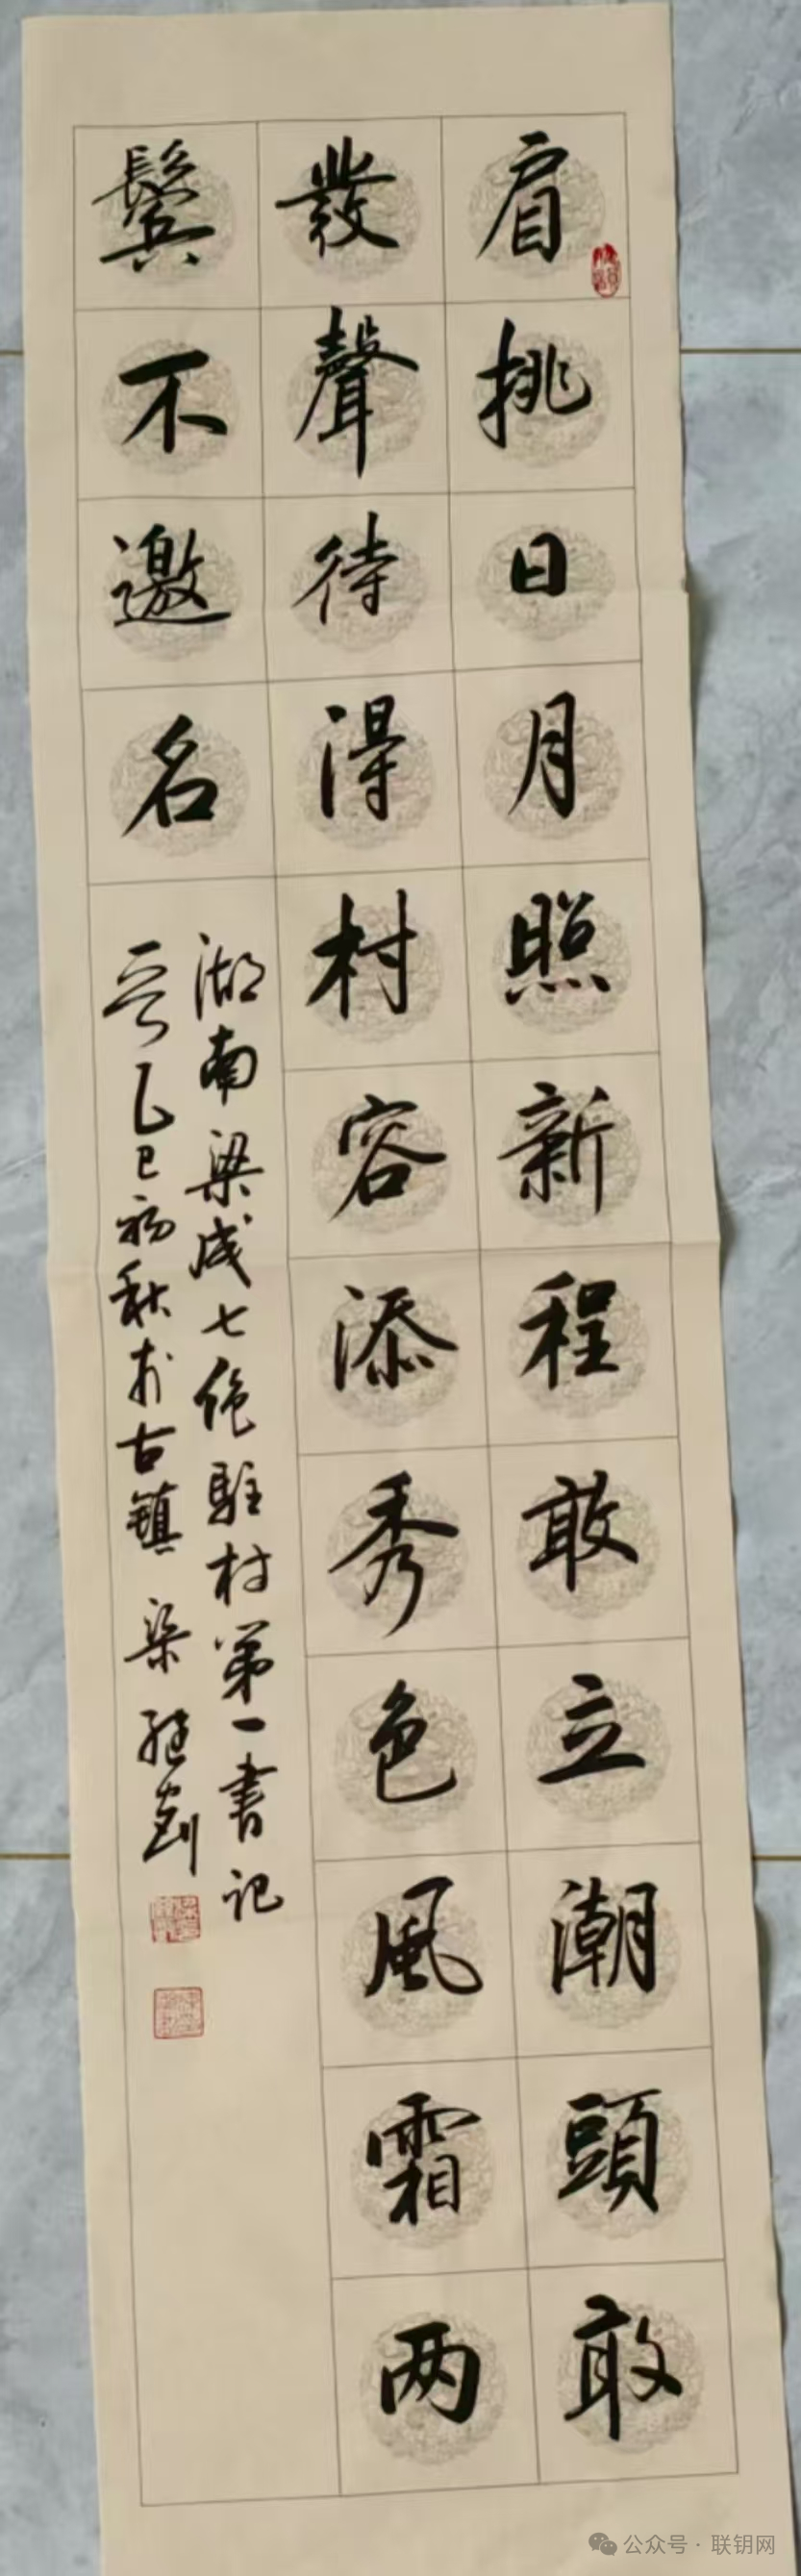 眉挑日月照新程敢立潮頭敢
發聲待得村容添秀色風霜两
鬓不邀名
湖南梁成七绝駐村第一書記
乙巳初秋於古镇 梁
公众号 · 联钥网